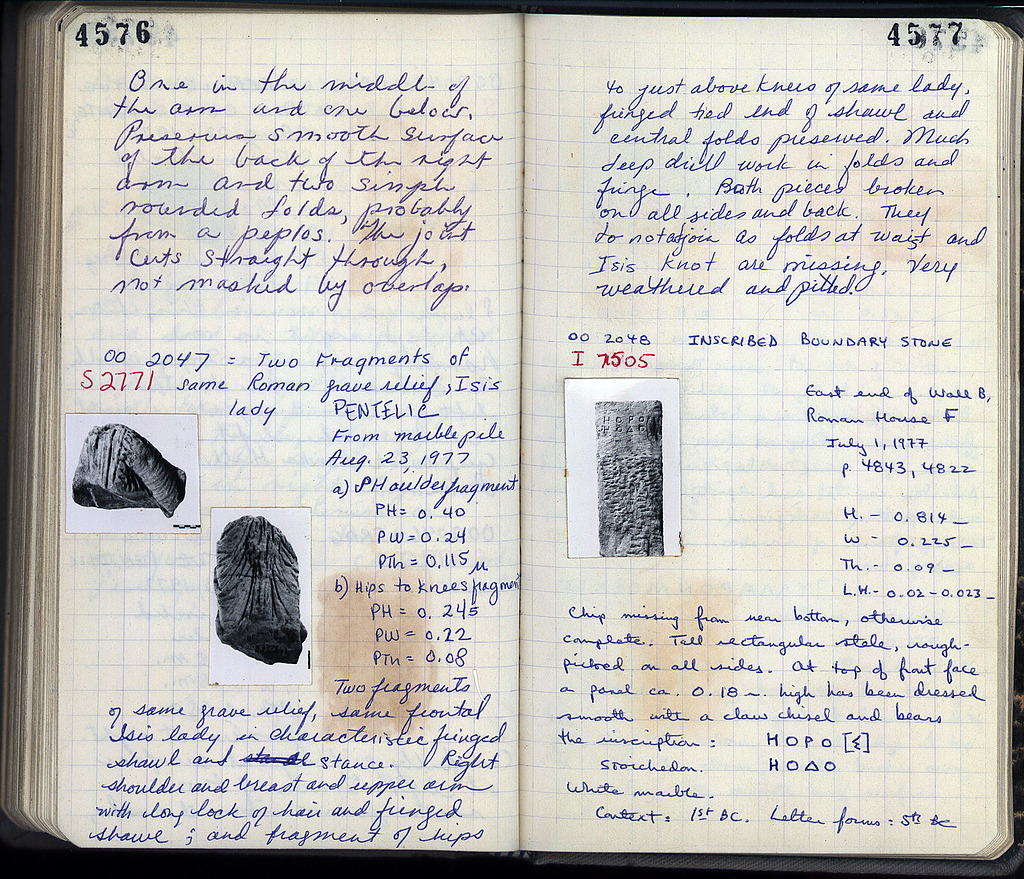 4576
One in the middle of
the arm and one below.
Preserves smooth surface
of the back of the right
arm and two simple
rounded folds, probably
from a peplos. The joint
cuts straight through,
not masked by overlap.
OO 2047 = Two Fragments of
S 2771 same Roman grave relief, Isis
lady PENTELIC
From marble pile
Aug. 23, 1977
a) SHoulder fragment
PH = 0.40
PW = 0.24
PTh = 0.115
b) Hips to knees fragment
PH = 0.245
PW = 0.22
PTh = 0.08
Two fragments
of same grave relief, same frontal
Isis lady in characteristic fringed
shawl and stance. Right
shoulder and breast and upper arm
with long lock of hair and fringed
shawl; and fragment of hips
4577
to just above knees of same lady,
fringed tied end of shawl and
central folds preserved. Much
deep drill work in folds and
fringe. Both pieces broken
on all sides and back. They
do not join as folds at waist and
Isis knot are missing. Very
weathered and pitted.
OO 2048 INSCRIBED BOUNDARY STONE
I 7505
East end of Wall B,
Roman House F
July 1, 1977
p. 4843, 4822
H. - 0.814
W - 0.225
Th. - 0.09
L.H. - 0.02 - 0.023
Chip missing from near bottom, otherwise
complete. Tall rectangular stele, rough-
picked on all sides. At top of front face
a panel ca. 0.18 m. high has been dressed
smooth with a claw chisel and bears
the inscription: ΗΟΡΟ[Σ]
Stoichedon. ΗΟΔΟ
White marble.
Context: 1st BC. Letter forms: 5th BC